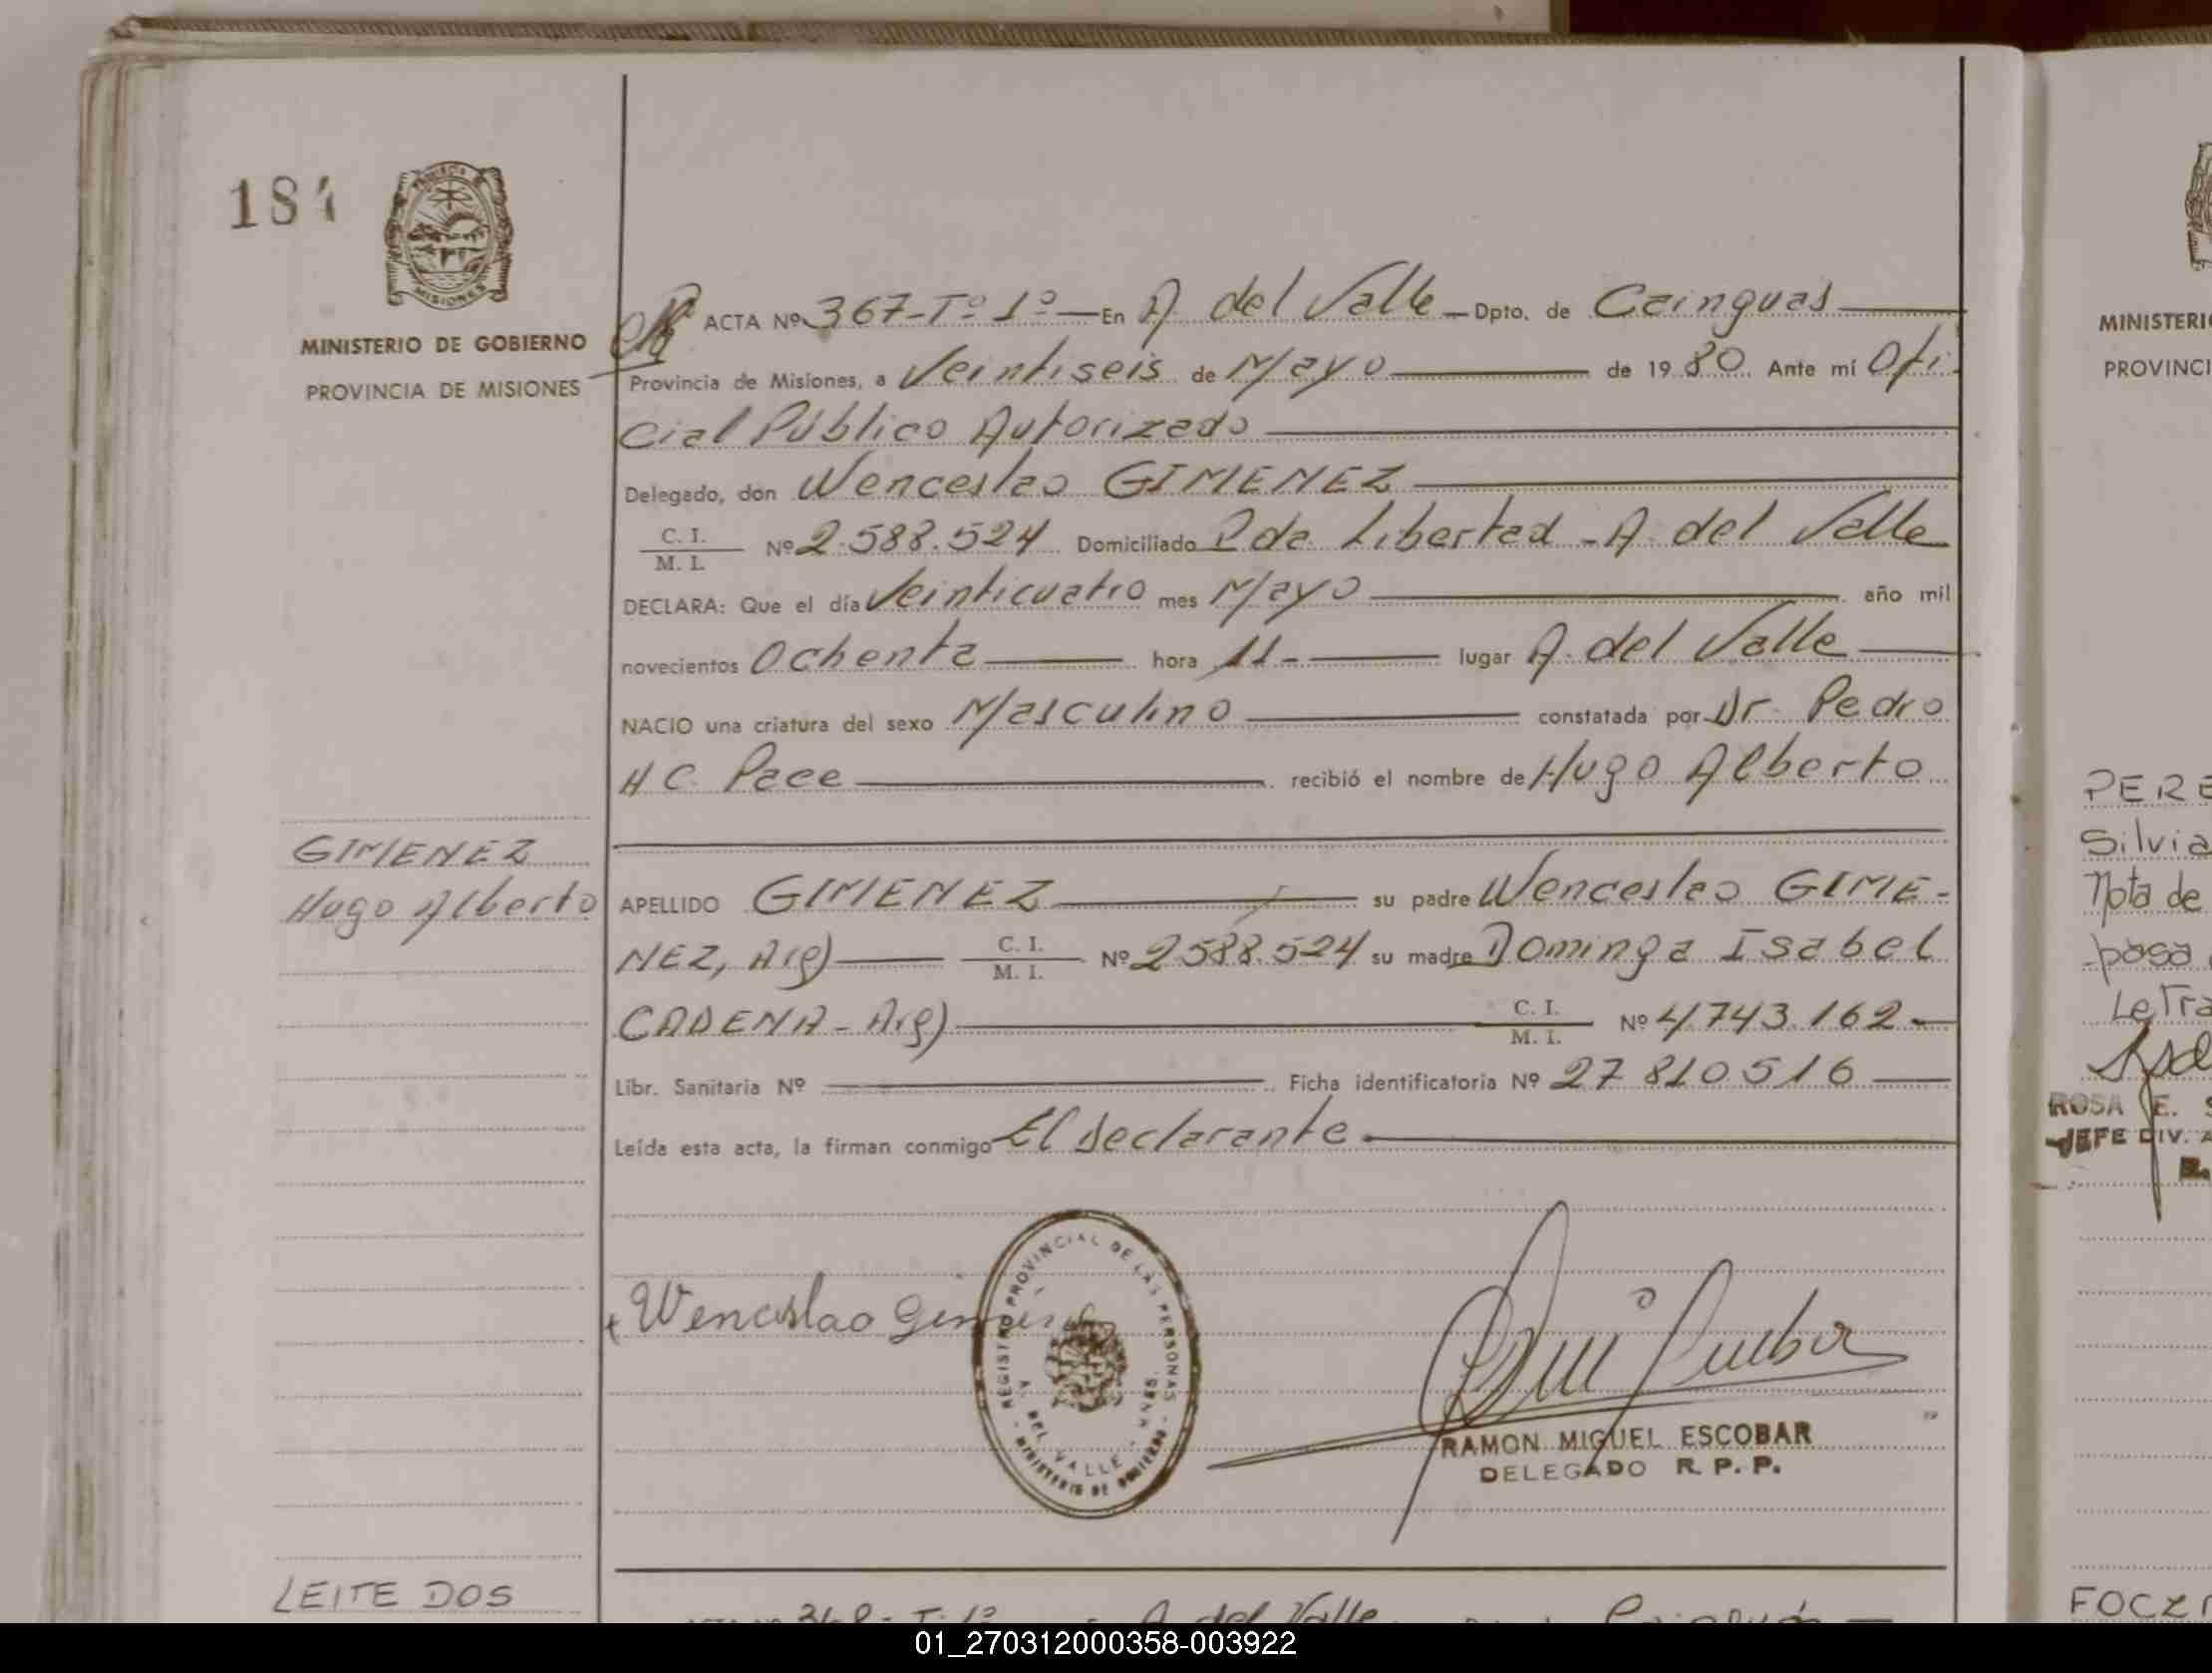 184
MISIONES
MINISTERIO DE GOBIERNO
PROVINCIA DE MISIONES
ACTA Nº 367-Tº 1º — En A. del Valle — Dpto. de Cainguas
Provincia de Misiones, a Veintiseis de Mayo de 1980. Ante mí Ofi
cial Público Autorizado
Delegado, don Wenceslao GIMENEZ
C. I.
M. I. Nº 2.588.524 Domiciliado Pda. Libertad - A. del Valle
DECLARA: Que el día Veinticuatro mes Mayo año mil
novecientos Ochenta hora 11- lugar A. del Valle
NACIO una criatura del sexo Masculino constatada por Dr. Pedro
H C. Pace recibió el nombre de Hugo Alberto
GIMENEZ
Hugo Alberto
APELLIDO GIMENEZ su padre Wenceslao GIME-
NEZ, Arg) C. I. M. I. Nº 2.588.524 su madre Dominga Isabel
CADENA - Arg) C. I. M. I. Nº 4743.162-
Libr. Sanitaria Nº Ficha identificatoria Nº 27 810516
Leída esta acta, la firman conmigo El declarante
Wenceslao Gimenez
REGISTRO PROVINCIAL DE LAS PERSONAS
A. DEL VALLE - MNES.
MINISTERIO DE GOBIERNO
RAMON MIGUEL ESCOBAR
DELEGADO R. P. P.
LEITE DOS
368- Tº 1º A. del Valle
MINISTERI
PROVINCI
PERE
Silvia
Nota de
pasa
Letra
ROSA E. S
JEFE DIV. A
FOCZ
01_270312000358-003922